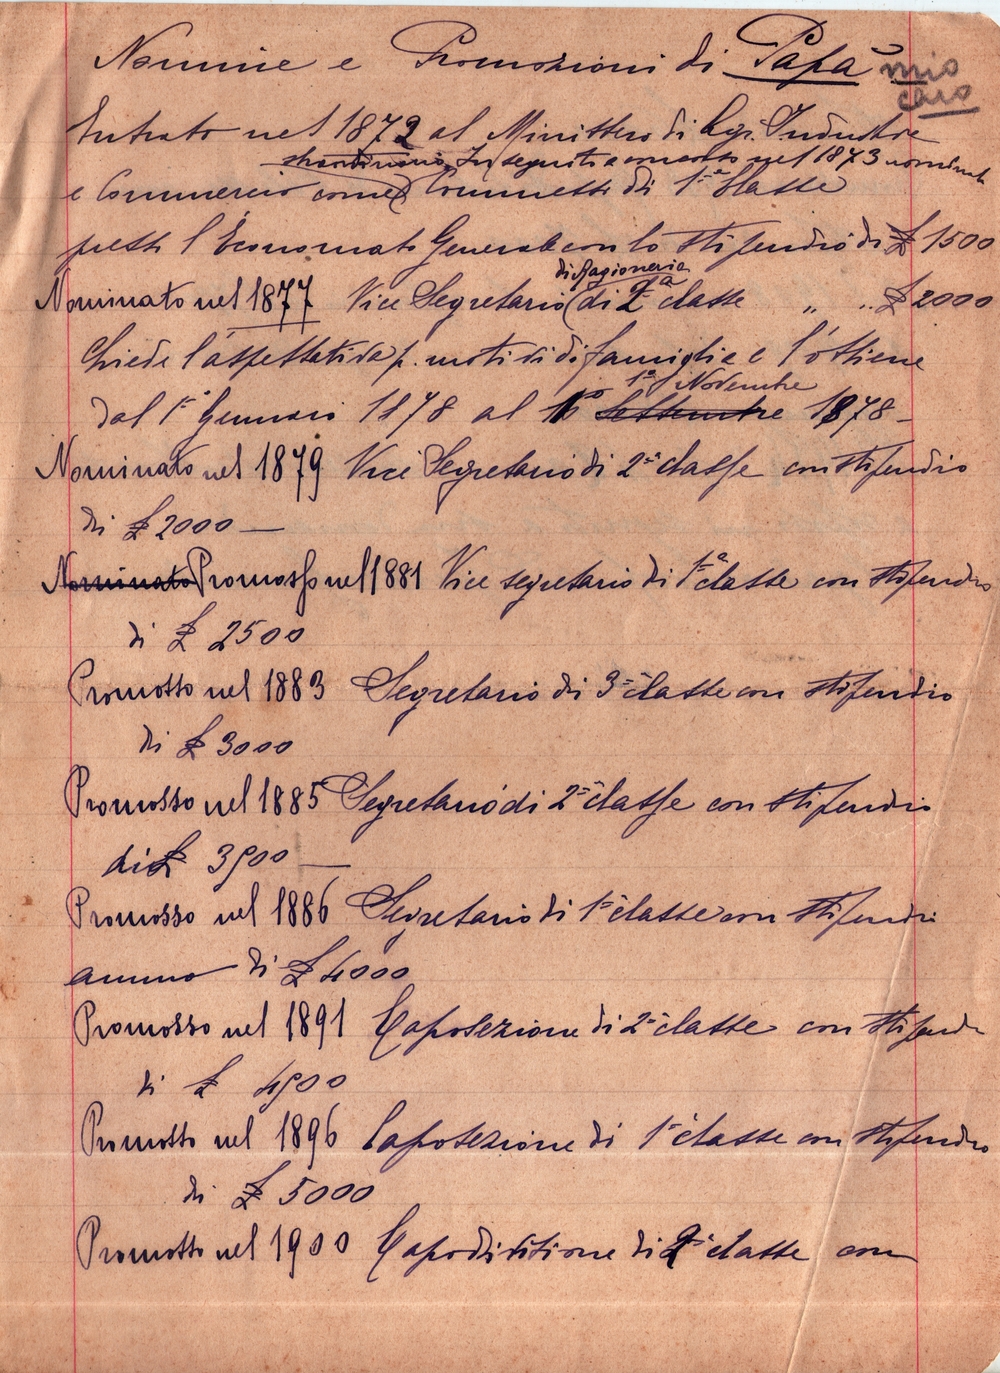 Nomine e Promozioni di Papà mio
caro
Entrato nel 1872 al Ministero di Agr. Industrie
straordinario In seguito a concorso nel 1873 nominato
e Commercio come Commesso di 1ª Classe
presso l'Economato Generale con lo stipendio di £ 1500
di Ragioneria
Nominato nel 1877 Vice Segretario (di 2ª classe " " £ 2000
Chiede l'aspettativa p. motivi di famiglia e l'ottiene
1º Novembre
dal 1º Gennaio 1878 al 1º Settembre 1878 -
Nominato nel 1879 Vice Segretario di 2ª classe con stipendio
di £ 2000 —
Nominato Promosso nel 1881 Vice segretario di 1ª classe con stipendio
di £ 2500
Promosso nel 1883 Segretario di 3ª classe con stipendio
di £ 3000
Promosso nel 1885 Segretario di 2ª classe con stipendio
di £ 3500 —
Promosso nel 1886 Segretario di 1ª classe con stipendio
annuo di £ 4000
Promosso nel 1891 Caposezione di 2ª classe con stipendio
di £ 4500
Promosso nel 1896 Caposezione di 1ª classe con stipendio
di £ 5000
Promosso nel 1900 Capodivisione di 2ª classe con